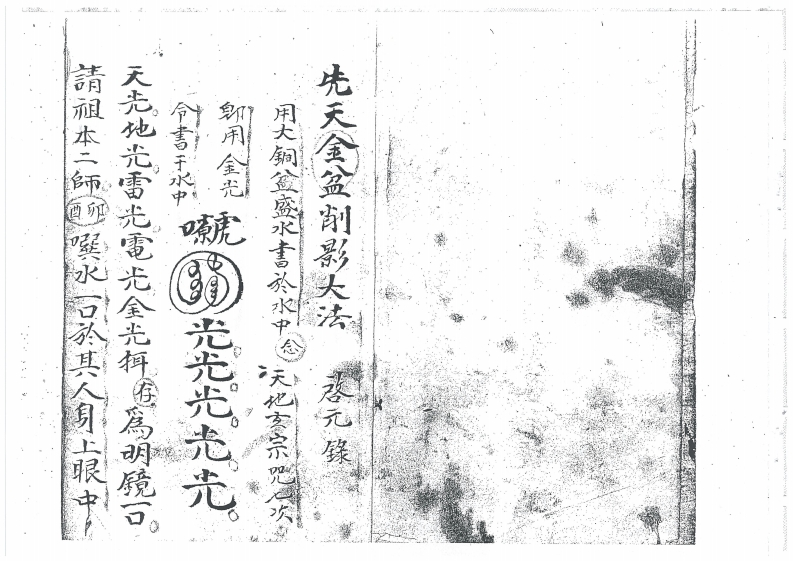 先天金盆削影大法 啓元錄
用大銅盆盛水書於水中念天地玄宗咒七次
即用金光
令書于水中
光光光光光
天光地光雷光電光金光揖存為明鏡一口
請祖本二師卯酉噀水一口於其人身上眼中